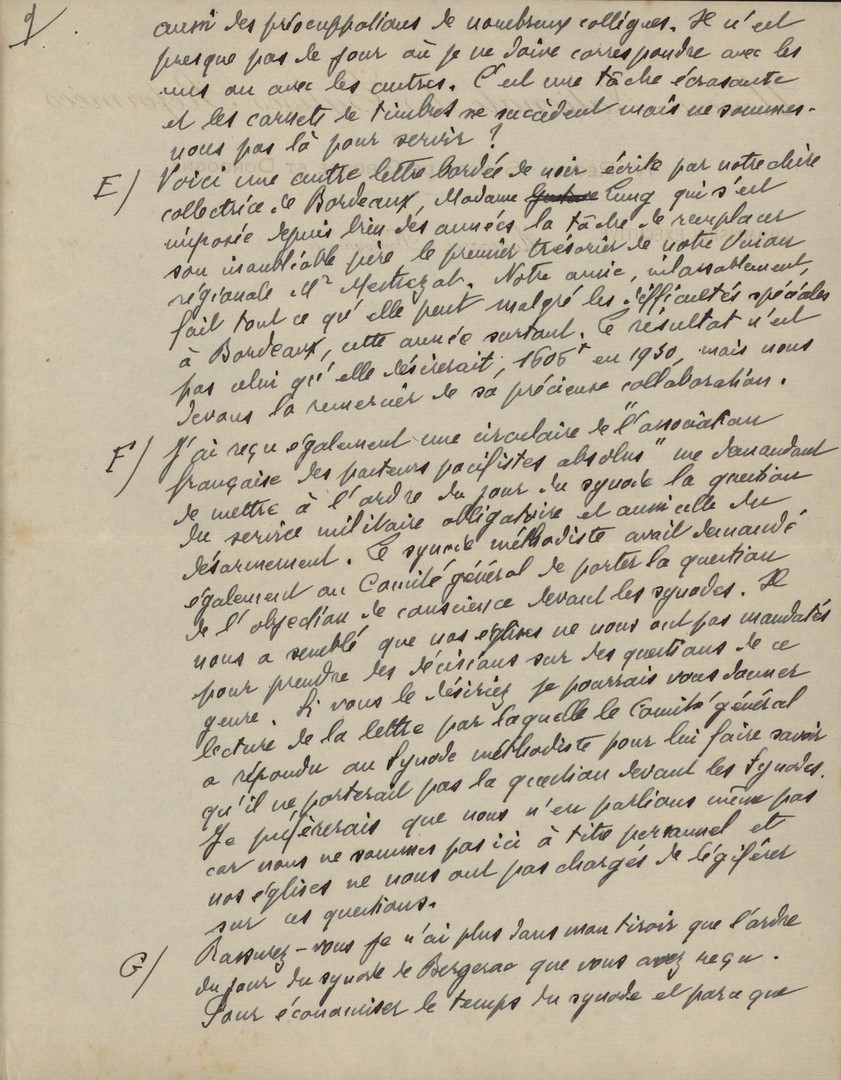 9.
aussi des préoccupations de nombreux collègues. Il n'est
presque pas de jour où je ne doive correspondre avec les
uns ou avec les autres. C'est une tâche écrasante
et les carnets de timbres se succèdent mais ne sommes-
nous pas là pour servir ?
E/ Voici une autre lettre bordée de noir écrite par notre chère
collectrice de Bordeaux, Madame Gustave Lung qui s'est
imposée depuis bien des années la tâche de remplacer
son inoubliable père le premier trésorier de notre Union
régionale Mr Mestrezat. Notre amie, inlassablement,
fait tout ce qu'elle peut malgré les difficultés spéciales
à Bordeaux, cette année surtout. Le résultat n'est
pas celui qu'elle désirerait, 1606f en 1930, mais nous
devons la remercier de sa précieuse collaboration.
F/ J'ai reçu également une circulaire de "l'association
française des pasteurs pacifistes absolus" me demandant
de mettre à l'ordre du jour du synode la question
du service militaire obligatoire et aussi celle du
désarmement. Le synode méthodiste avait demandé
également au Comité général de porter la question
de l'objection de conscience devant les synodes. Il
nous a semblé que nos églises ne nous ont pas mandatés
pour prendre des décisions sur des questions de ce
genre. Si vous le désiriez je pourrais vous donner
lecture de la lettre par laquelle le Comité général
a répondu au Synode méthodiste pour lui faire savoir
qu'il ne porterait pas la question devant les Synodes.
Je préfèrerais que nous n'en parlions même pas
car nous ne sommes pas ici à titre personnel et
nos églises ne nous ont pas chargés de légiférer
sur ces questions.
G/ Rassurez-vous je n'ai plus dans mon tiroir que l'ordre
du jour du synode de Bergerac que vous avez reçu.
Pour économiser le temps du synode et parce que